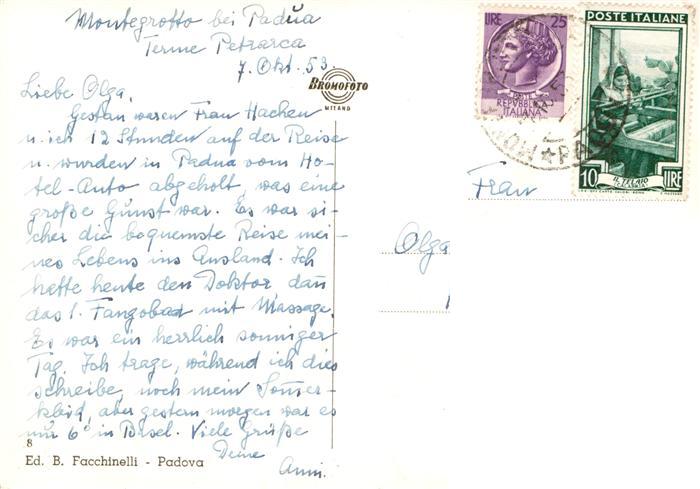 Montegrotto bei Padua
Terme Petrarca
7. Okt. 53.
Liebe Olga,
Gestern waren Frau Hachen
u. ich 12 Stunden auf der Reise
u. wurden in Padua vom Ho-
tel-Auto abgeholt, was eine
große Gunst war. Es war si-
cher die bequemste Reise mei-
nes Lebens ins Ausland. Ich
hatte heute den Doktor dann
das 1. Fangobad mit Massage.
Es war ein herrlich sonniger
Tag. Ich trage, während ich dies
schreibe, noch mein Somer-
kleid, aber gestern morgen war es
nur 6° in Basel. Viele Grüße
Deine
Anni.
8
Ed. B. Facchinelli - Padova
BROMOFOTO
MILANO
LIRE 25
POSTE
REPUBBLICA
ITALIANA
POSTE ITALIANE
IL TELAIO
CALABRIA
10 LIRE
PADOVA
Frau
Olga